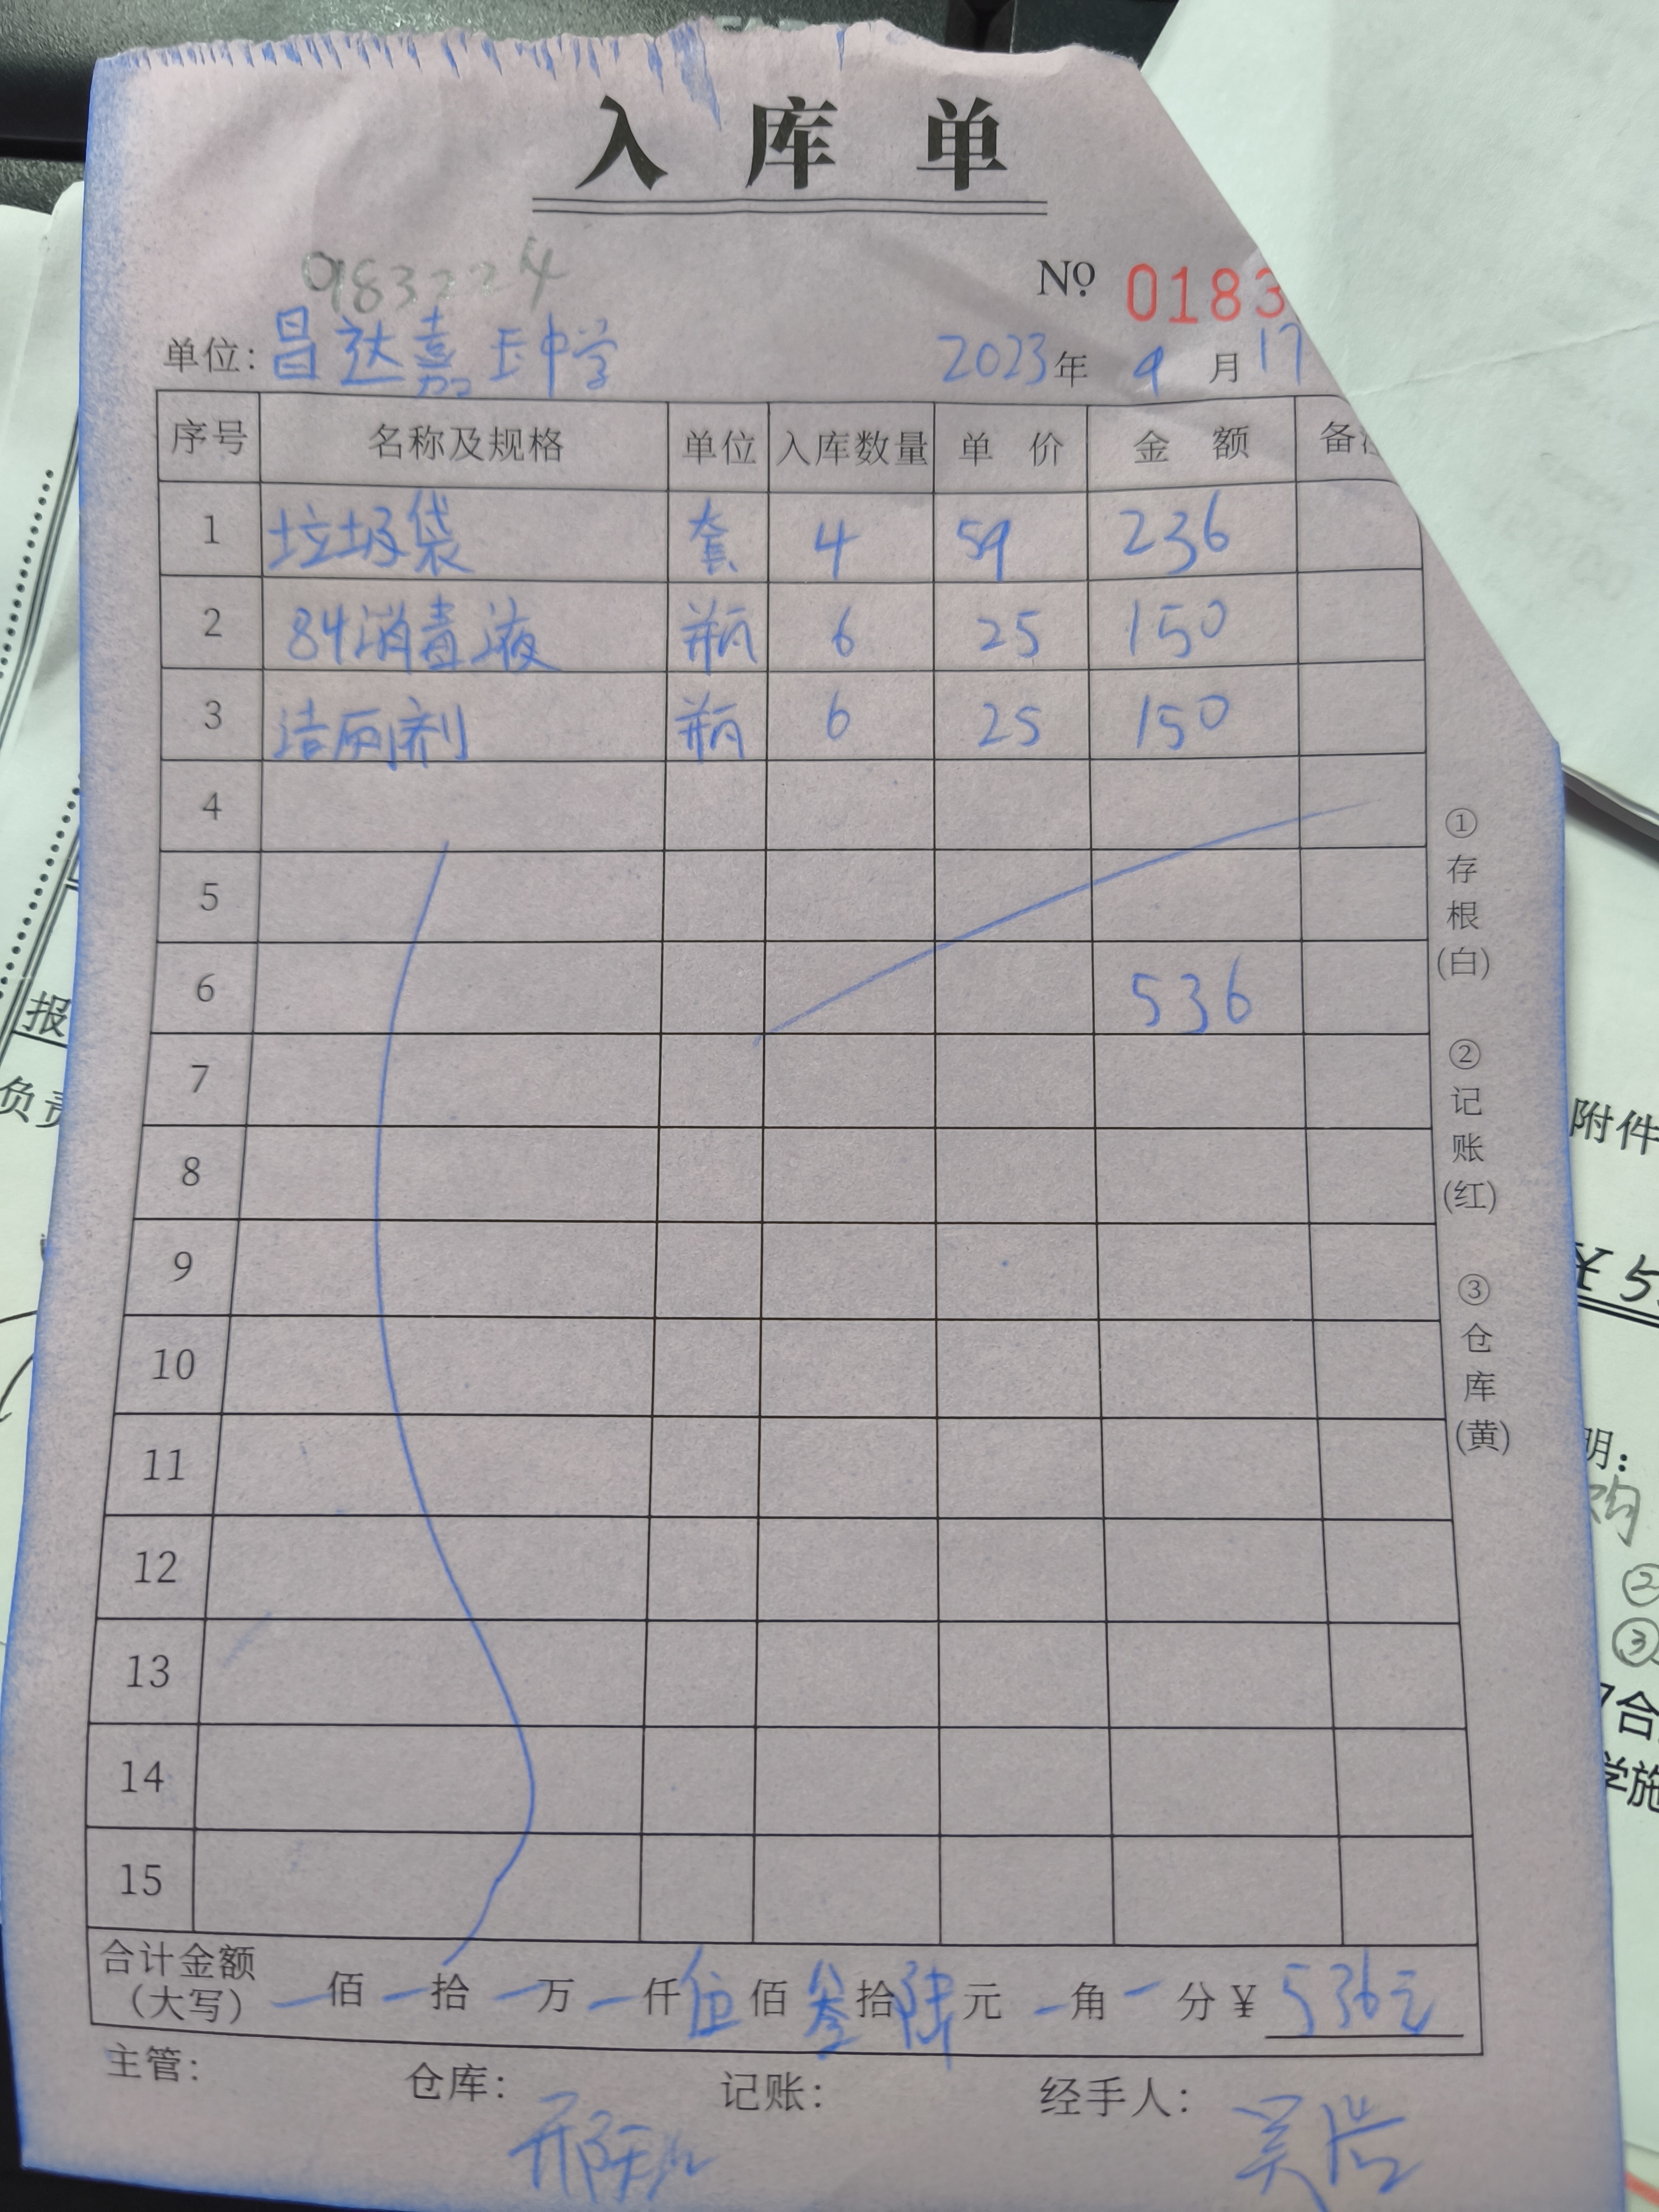 入库单
983224
№ 0183
单位：昌达嘉 中学 2023年 9 月 17
序号 名称及规格 单位 入库数量 单价 金额 备
1 垃圾袋 套 4 59 236
2 84消毒液 瓶 6 25 150
3 洁厕剂 瓶 6 25 150
4
5
6 536
7
8
9
10
11
12
13
14
15
合计金额
（大写） 佰 拾 万 仟伍佰叁拾陆元 角 分¥ 536元
主管： 仓库： 记账： 经手人：
①存根(白) ②记账(红) ③仓库(黄)
报
负责
附件
¥5
明：
购
②
③
合
学施